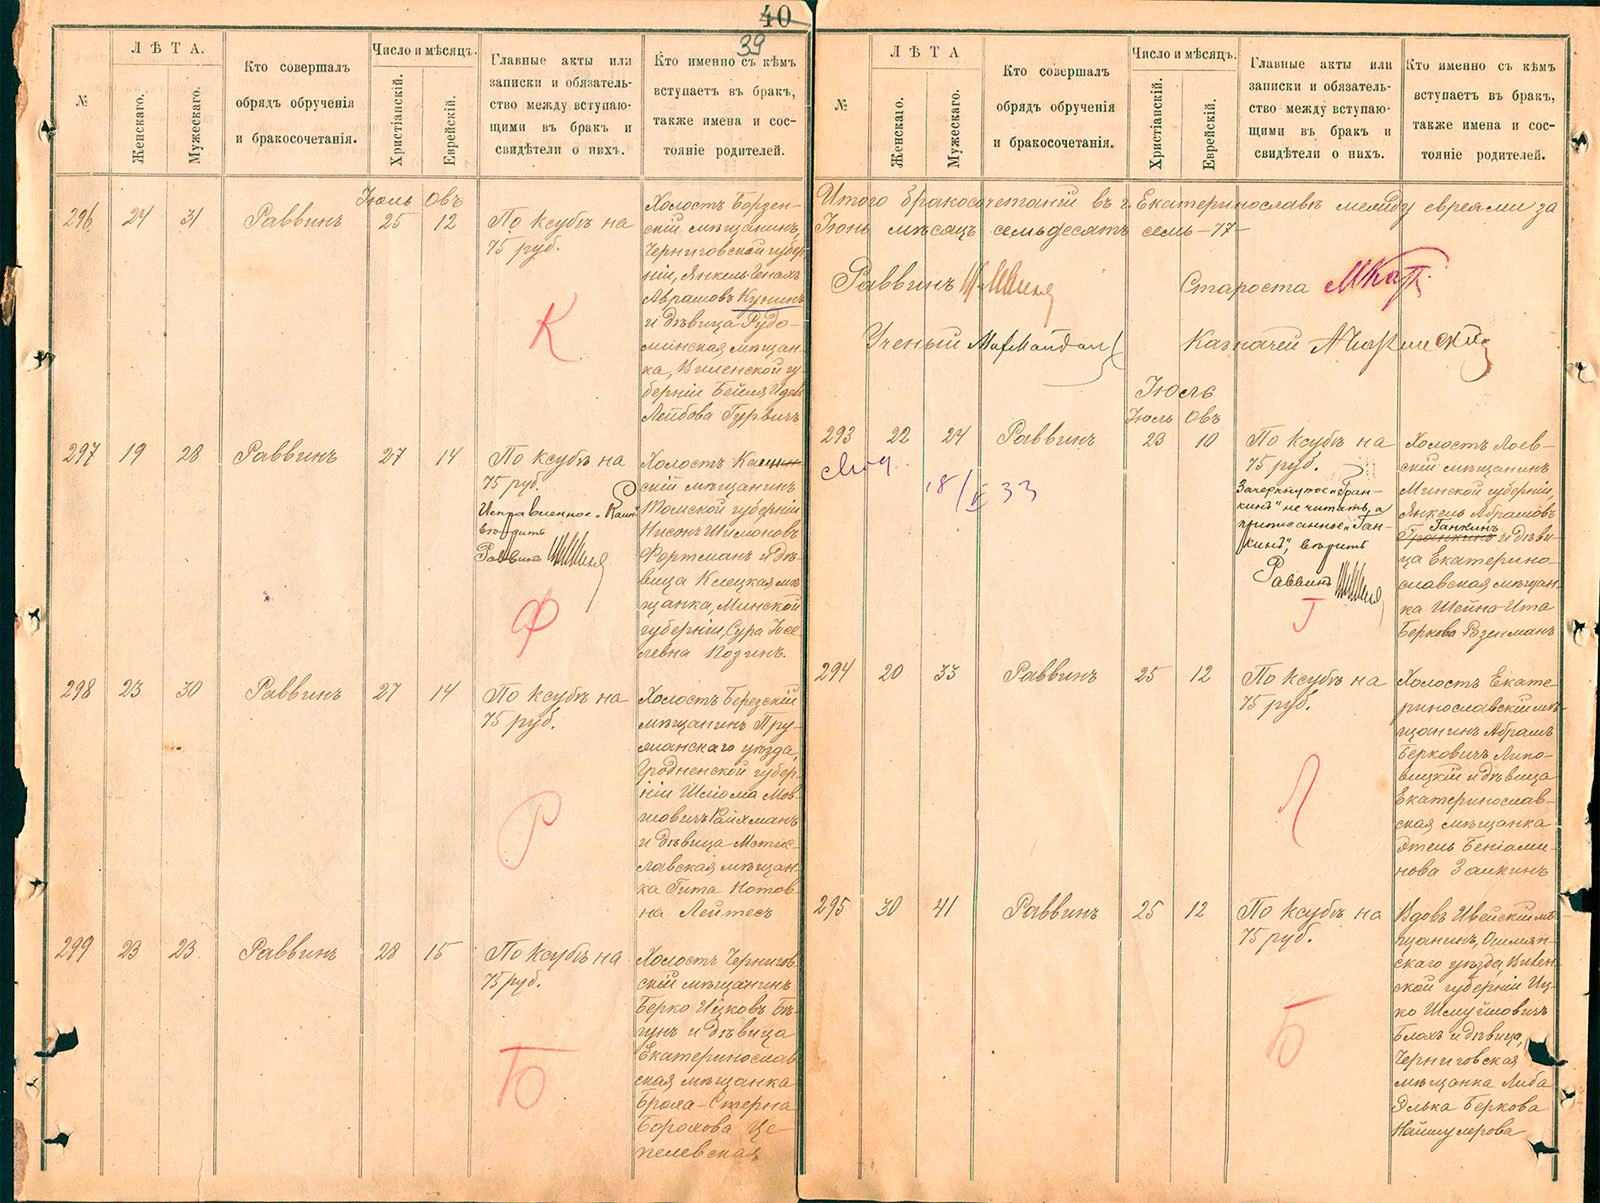 40
39
№
ЛѢТА.
Женскаго.
Мужескаго.
Кто совершалъ
обрядъ обрученія
и бракосочетанія.
Число и мѣсяцъ.
Христіанскій.
Еврейскій.
Главные акты или
записки и обязатель-
ство между вступаю-
щими въ бракъ и
свидѣтели о нихъ.
Кто именно съ кѣмъ
вступаетъ въ бракъ,
также имена и сос-
тояніе родителей.
Іюль Овъ
296 24 31 Раввинъ 25 12
По ксубѣ на
75 руб.
К
Холостъ Борзен-
скій мѣщанинъ,
Черниговской губер
ніи, Янкель Генахъ
Аврамовъ Кунинъ
и дѣвица Рудо-
минская мѣщан-
ка, Виленской гу-
берніи Бейля Идаъ
Лейбова Гурвичъ
297 19 28 Раввинъ 27 14
По ксубѣ на
75 руб.
Исправленное „Каин"
вѣдить
Раввинъ
Ф
Холостъ Каинн
скій мѣщанинъ
Томской губерніи
Нисонъ Шимоновъ
Фортманъ и дѣ-
вица Клецкая мѣ-
щанка, Минской
губерніи, Сура Іосе
левна Козинъ.
298 23 30 Раввинъ 27 14
По ксубѣ на
75 руб.
Р
Холостъ Березскій
мѣщанинъ Пру-
жанскаго уѣзда,
Гродненской губер-
ніи Шлiома Мов
шовичъ Райхманъ
и дѣвица Мстис-
лавская мѣщан-
ка Гита Нотов-
на Лейтесъ
299 23 23 Раввинъ 28 15
По ксубѣ на
75 руб.
Б
Холостъ Чернигов
скій мѣщанинъ
Берко Ицковъ Бѣ-
гунъ и дѣвица
Екатеринослав
ская мѣщанка
Броха-Стерна
Борохова Це-
пелевская
№
ЛѢТА
Женскаго.
Мужескаго.
Кто совершалъ
обрядъ обрученія
и бракосочетанія.
Число и мѣсяцъ.
Христіанскій.
Еврейскій.
Главные акты или
записки и обязатель-
ство между вступаю-
щими въ бракъ и
свидѣтели о нихъ.
Кто именно съ кѣмъ
вступаетъ въ бракъ,
также имена и сос-
тояніе родителей.
Итого бракосочетаній въ г. Екатеринославѣ между евреями за
Іюнь мѣсяцъ семьдесятъ семь -77-
Раввинъ
Староста
Ученый
Казначей
Іюль
Іюль Овъ
293 22 24 Раввинъ 23 10
18/V 33
По ксубѣ на
75 руб.
Зачеркнутое „Гран-
кинъ" не читать, а
приписанное „Ган-
кинъ", вѣдить
Раввинъ
Г
Холостъ Лоев-
скій мѣщанинъ
Минской губерніи,
Янкель Абрамовъ
Ганкинъ
Гранкинъ и дѣви-
ца Екатерино-
славская мѣщан-
ка Шейна-Ита
Беркова Розенманъ
294 20 33 Раввинъ 25 12
По ксубѣ на
75 руб.
Л
Холостъ Екате-
ринославскій мѣ-
щанинъ Абрамъ
Берковичъ Липо-
вицкій и дѣвица
Екатеринослав-
ская мѣщанка
Этель Беніами-
нова Заикинъ
295 30 41 Раввинъ 25 12
По ксубѣ на
75 руб.
Б
Вдовъ Ивейскій мѣ
щанинъ, Ошмян-
скаго уѣзда, Вилен-
ской губерніи Иц-
ко Шмуйловичъ
Блохъ и дѣвица,
Черниговская
мѣщанка Либа
Элька Беркова